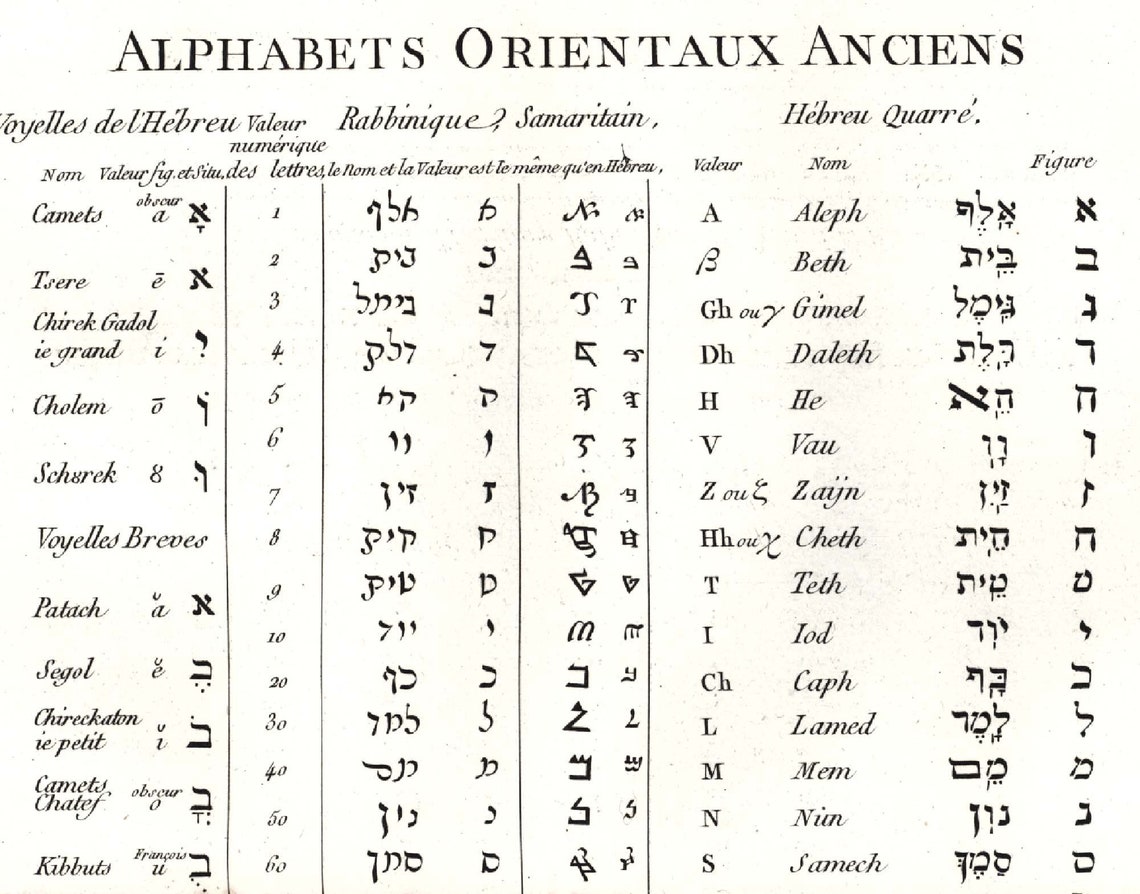 ALPHABETS ORIENTAUX ANCIENS
Voyelles de l'Hébreu Valeur numérique Rabbinique, Samaritain, Hébreu Quarré.
Nom Valeur fig. et Situ, des lettres, le Nom et la Valeur est le même qu'en Hébreu, Valeur Nom Figure
Camets obscur a אָ 1 אלף א A Aleph אָלֶף א
2 בית ב β Beth בֵּית ב
Tsere ē א
3 גימל ג Gh ou γ Gimel גִּימֶל ג
Chirek Gadol
ie grand i יִ 4 דלת ד Dh Daleth דָּלֶת ד
Cholem ō וֹ 5 הא ה H He הֵא ה
6 וו ו V Vau וָו ו
Schȣrek ȣ וּ
7 זין ז Z ou ζ Zaijn זַיִן ז
Voyelles Breves 8 חית ח Hh ou χ Cheth חֵית ח
Patach ă א 9 טית ט T Teth טֵית ט
10 יוד י I Iod יוֹד י
Segol ĕ בֶ 20 כף כ Ch Caph כָּף כ
Chireckaton
ie petit ĭ ב 30 למד ל L Lamed לָמֶד ל
40 מם מ M Mem מֵם מ
Camets
Chatef obscur o בֳ 50 נון נ N Nun נוּן נ
Kibbuts François u בֻ 60 סמך ס S Samech סָמֶךְ ס